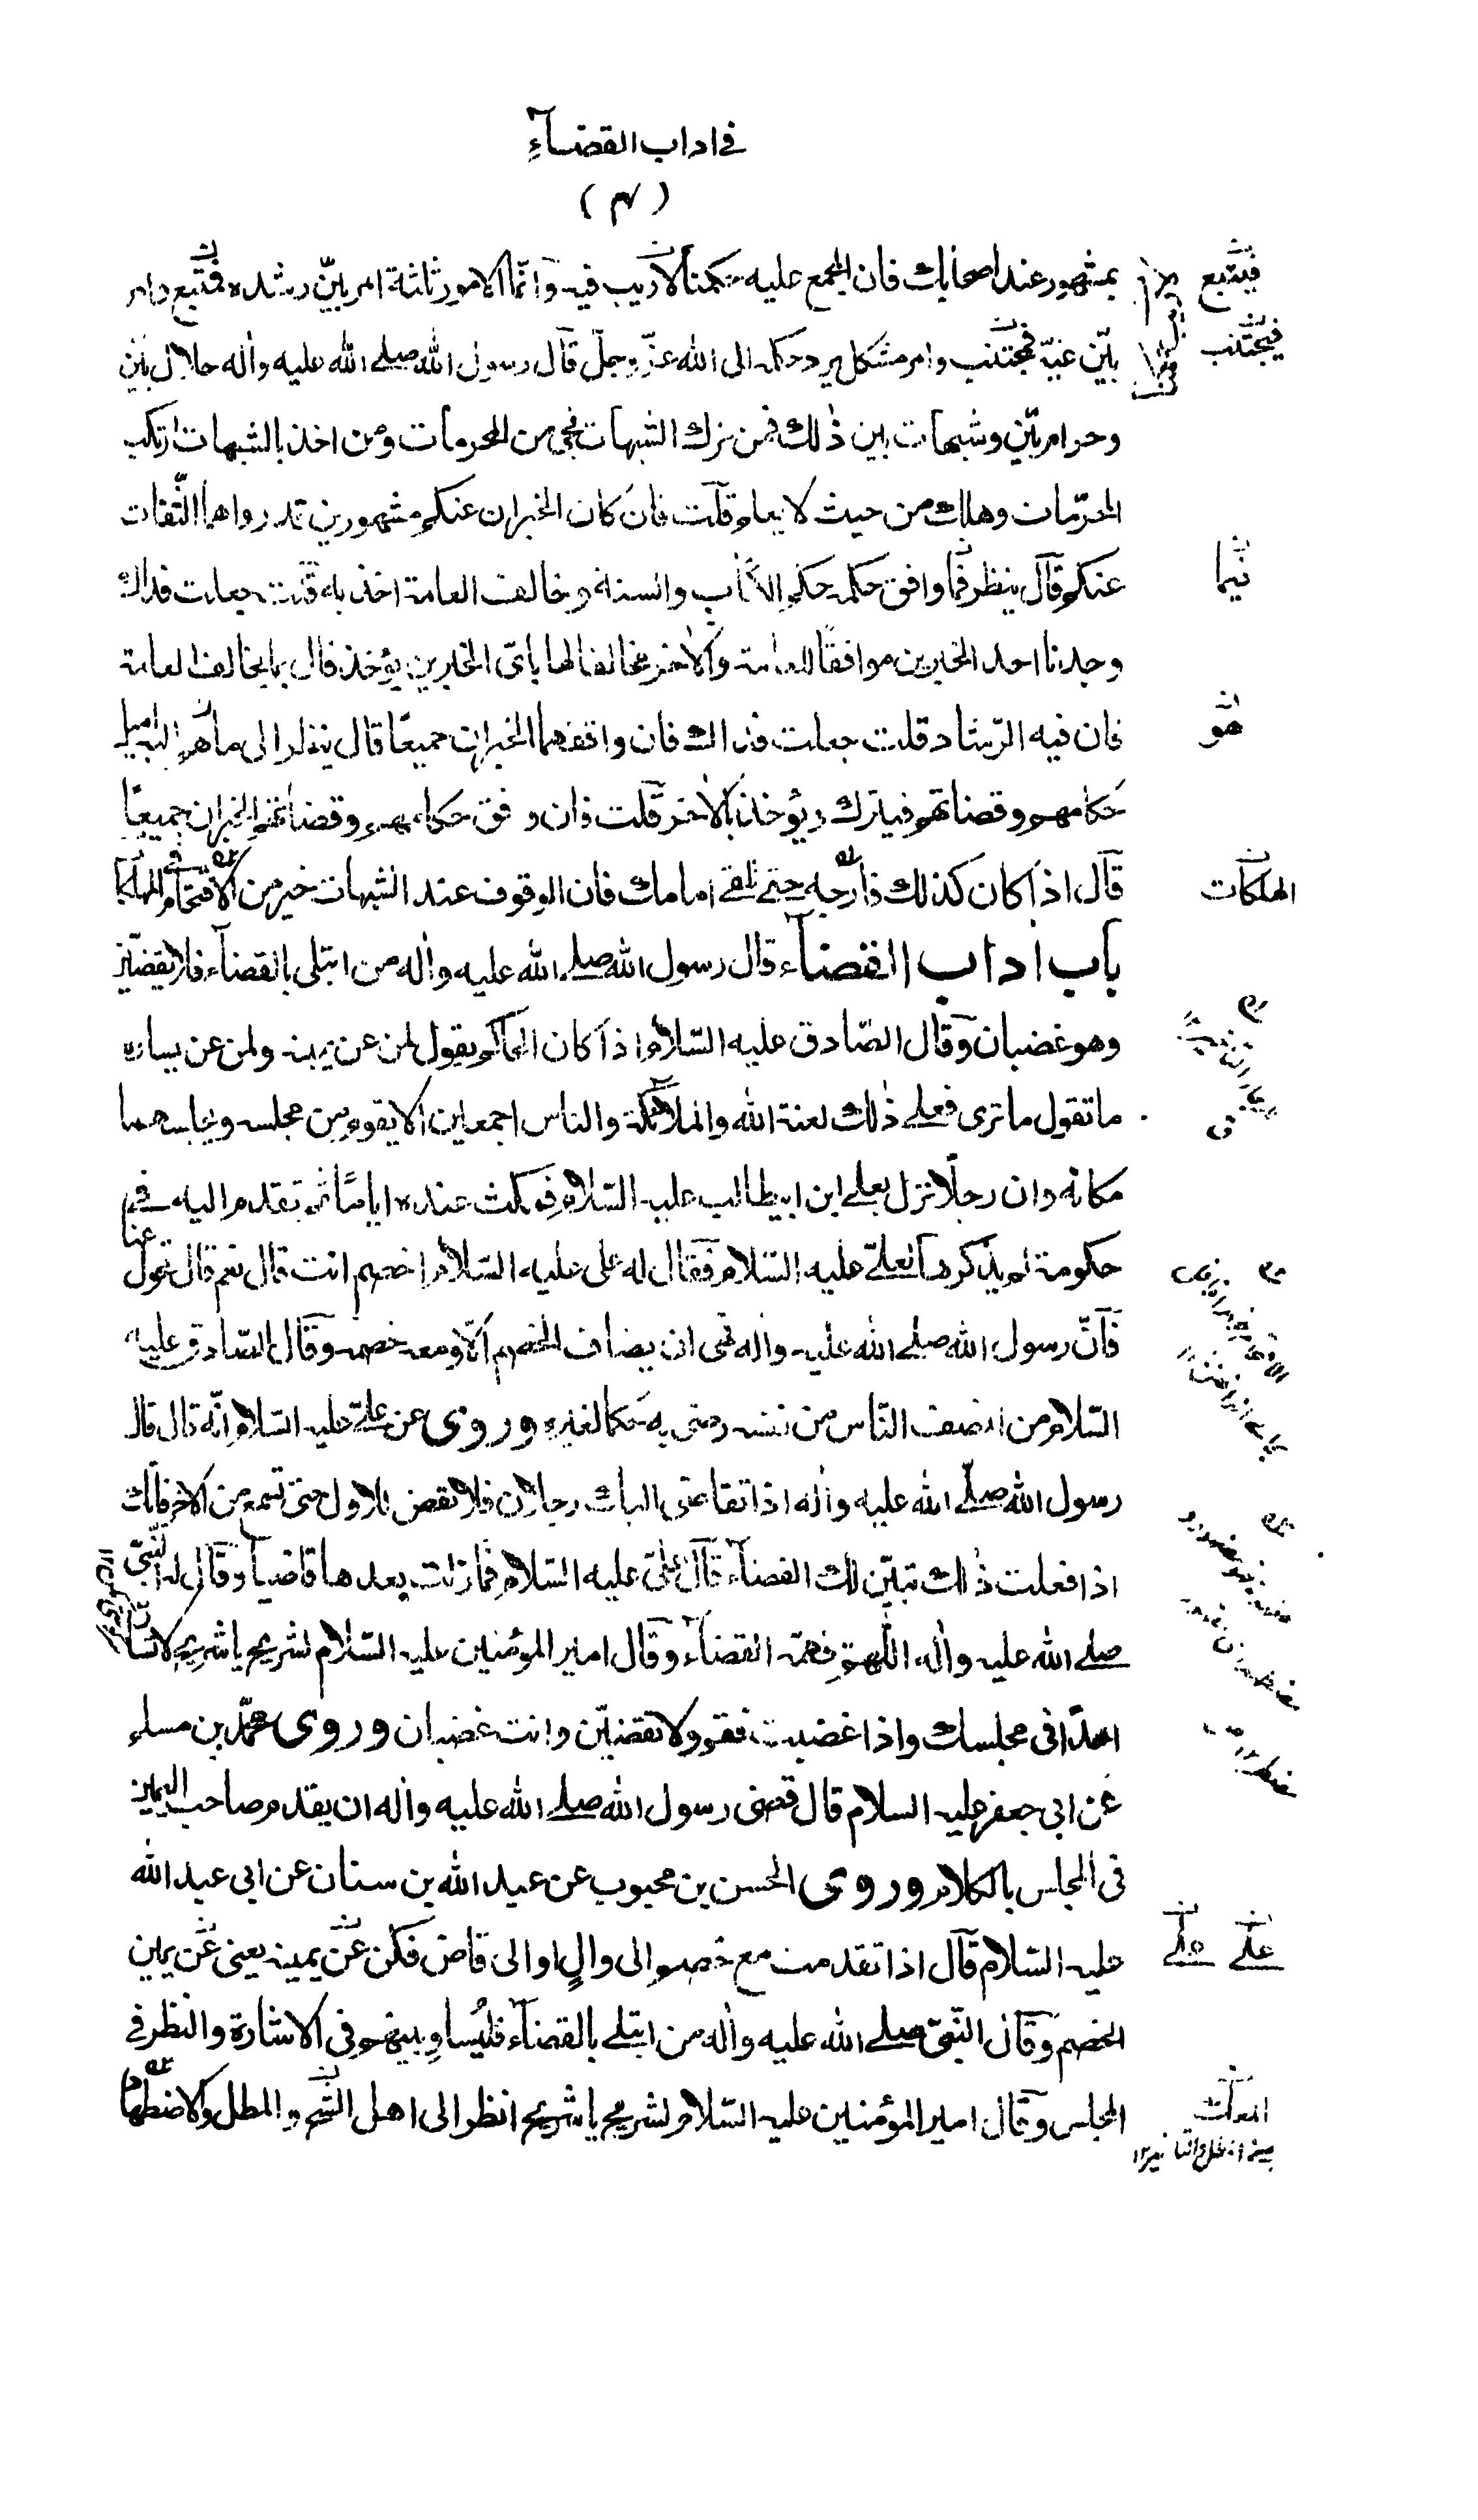 في اداب القضاء
بمشهور عند اصحابك فان المجمع عليه حكمنا لا ريب فيه وانّما الامور ثلثة امر بيّن رشده فمتّبع وامر
بيّن غيّه فمجتنب وامر مشكل يرد حكمه الى الله عزّ وجلّ قال رسول الله صلى الله عليه واٰله حلال بيّن
وحرام بيّن وشبهات بين ذٰلك فمن ترك الشبهات نجى من المحرمات ومن اخذ بالشبهات ارتكب
المحرّمات وهلك من حيث لا يعلم قلت فان كان الخبران عنكم مشهورين قد رواهما الثّقات
عنكم قال ينظر فما وافق حكمه حكم الكتاب والسنة وخالف العامة اخذ به قلت جعلت فداك
وجدنا احد الخبرين موافقًا للعامة والاخر مخالفا لها باىّ الخبرين يؤخذ قال بما يخالف العامة
فان فيه الرّشاد قلت جعلت فداك فان وافقهما الخبران جميعًا قال ينظر الى ما هم اليه اميل
حكامهم وقضاتهم فيترك ويؤخذ بالاٰخر قلت فان وافق حكامهم وقضاتهم الخبران جميعًا
قال اذا كان كذلك فارجه حتى تلقى امامك فان الوقوف عند الشبهات خير من الاقتحام في الهلكات
باب اداب القضاء قال رسول الله صلى الله عليه واٰله من ابتلى بالقضاء فلا يقضينّ
وهو غضبان وقال الصّادق عليه السّلام اذا كان الحاكم يقول لمن عن يمينه ولمن عن يساره
ما تقول ما ترى فعلى ذٰلك لعنة الله والملائكة والناس اجمعين الا يقوم من مجلسه ويجلسهما
مكانه وان رجلًا نزل بعلى ابن ابيطالب عليه السّلام فمكث عنده ايامًا ثم تقدم اليه في
حكومة لم يذكرها لعلىّ عليه السّلام فقال له على عليه السّلام اخصم انت قال نعم قال تحول عنا
فانّ رسول الله صلى الله عليه واٰله نهى ان يضاف الخصم الّا ومعه خصمه وقال الصّادق عليه
السّلام من انصف النّاس من نفسه رضى به حكما لغيره وروى عن علىّ عليه السّلام انّه قال قال
رسول الله صلّى الله عليه واٰله اذا تقاضى اليك رجلان فلا تقض للاول حتى تسمع من الاخر فانّك
اذا فعلت ذٰلك تبيّن لك القضاء قال علىّ عليه السّلام فما زلت بعدها قاضيا وقال له النّبىّ
صلى الله عليه واٰله اللّهمّ فهّمه القضاء وقال امير المؤمنين عليه السّلام لشريح يا شريح لا تسارّ
احدًا فى مجلسك واذا غضبت فقم ولا تقضينّ وانت غضبان وروى محمّد بن مسلم
عن ابى جعفر عليه السلام قال قضى رسول الله صلى الله عليه واٰله ان يقدم صاحب اليمين
فى المجلس بالكلام وروى الحسن بن محبوب عن عبد الله بن سنان عن ابى عبد الله
عليه السّلام قال اذا تقدمت مع خصم الى والٍ او الى قاض فكن عن يمينه يعنى عن يمين
الخصم وقال النّبىّ صلى الله عليه واٰله من ابتلى بالقضاء فليُساوِ بينهم فى الاشارة والنظر فى
المجلس وقال امير المؤمنين عليه السّلام لشريح يا شريح انظر الى اهل الشّح والمطل والاضطهاد
فيتّبع
فيجتنب
فيما
هو
الهلكات
على على
المعك